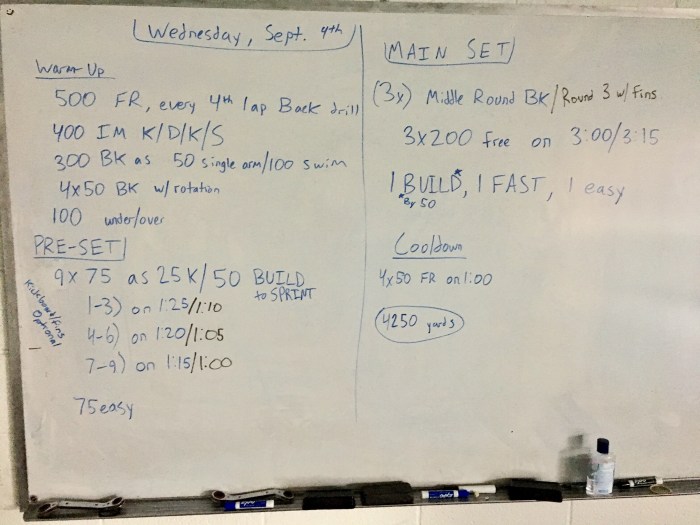 Wednesday, Sept. 4th
Warm Up
500 FR, every 4th lap Back drill
400 IM K/D/K/S
300 BK as 50 single arm/100 swim
4x50 BK w/ rotation
100 under/over
PRE-SET
9x 75 as 25 K/50 BUILD
to SPRINT
Kickboard/fins
Optional
1-3) on 1:25/1:10
4-6) on 1:20/1:05
7-9) on 1:15/1:00
75 easy
MAIN SET
(3x) Middle Round BK/Round 3 w/ fins
3x200 free on 3:00/3:15
1 BUILD*, 1 FAST, 1 easy
*By 50
Cooldown
4x50 FR on 1:00
4250 yards